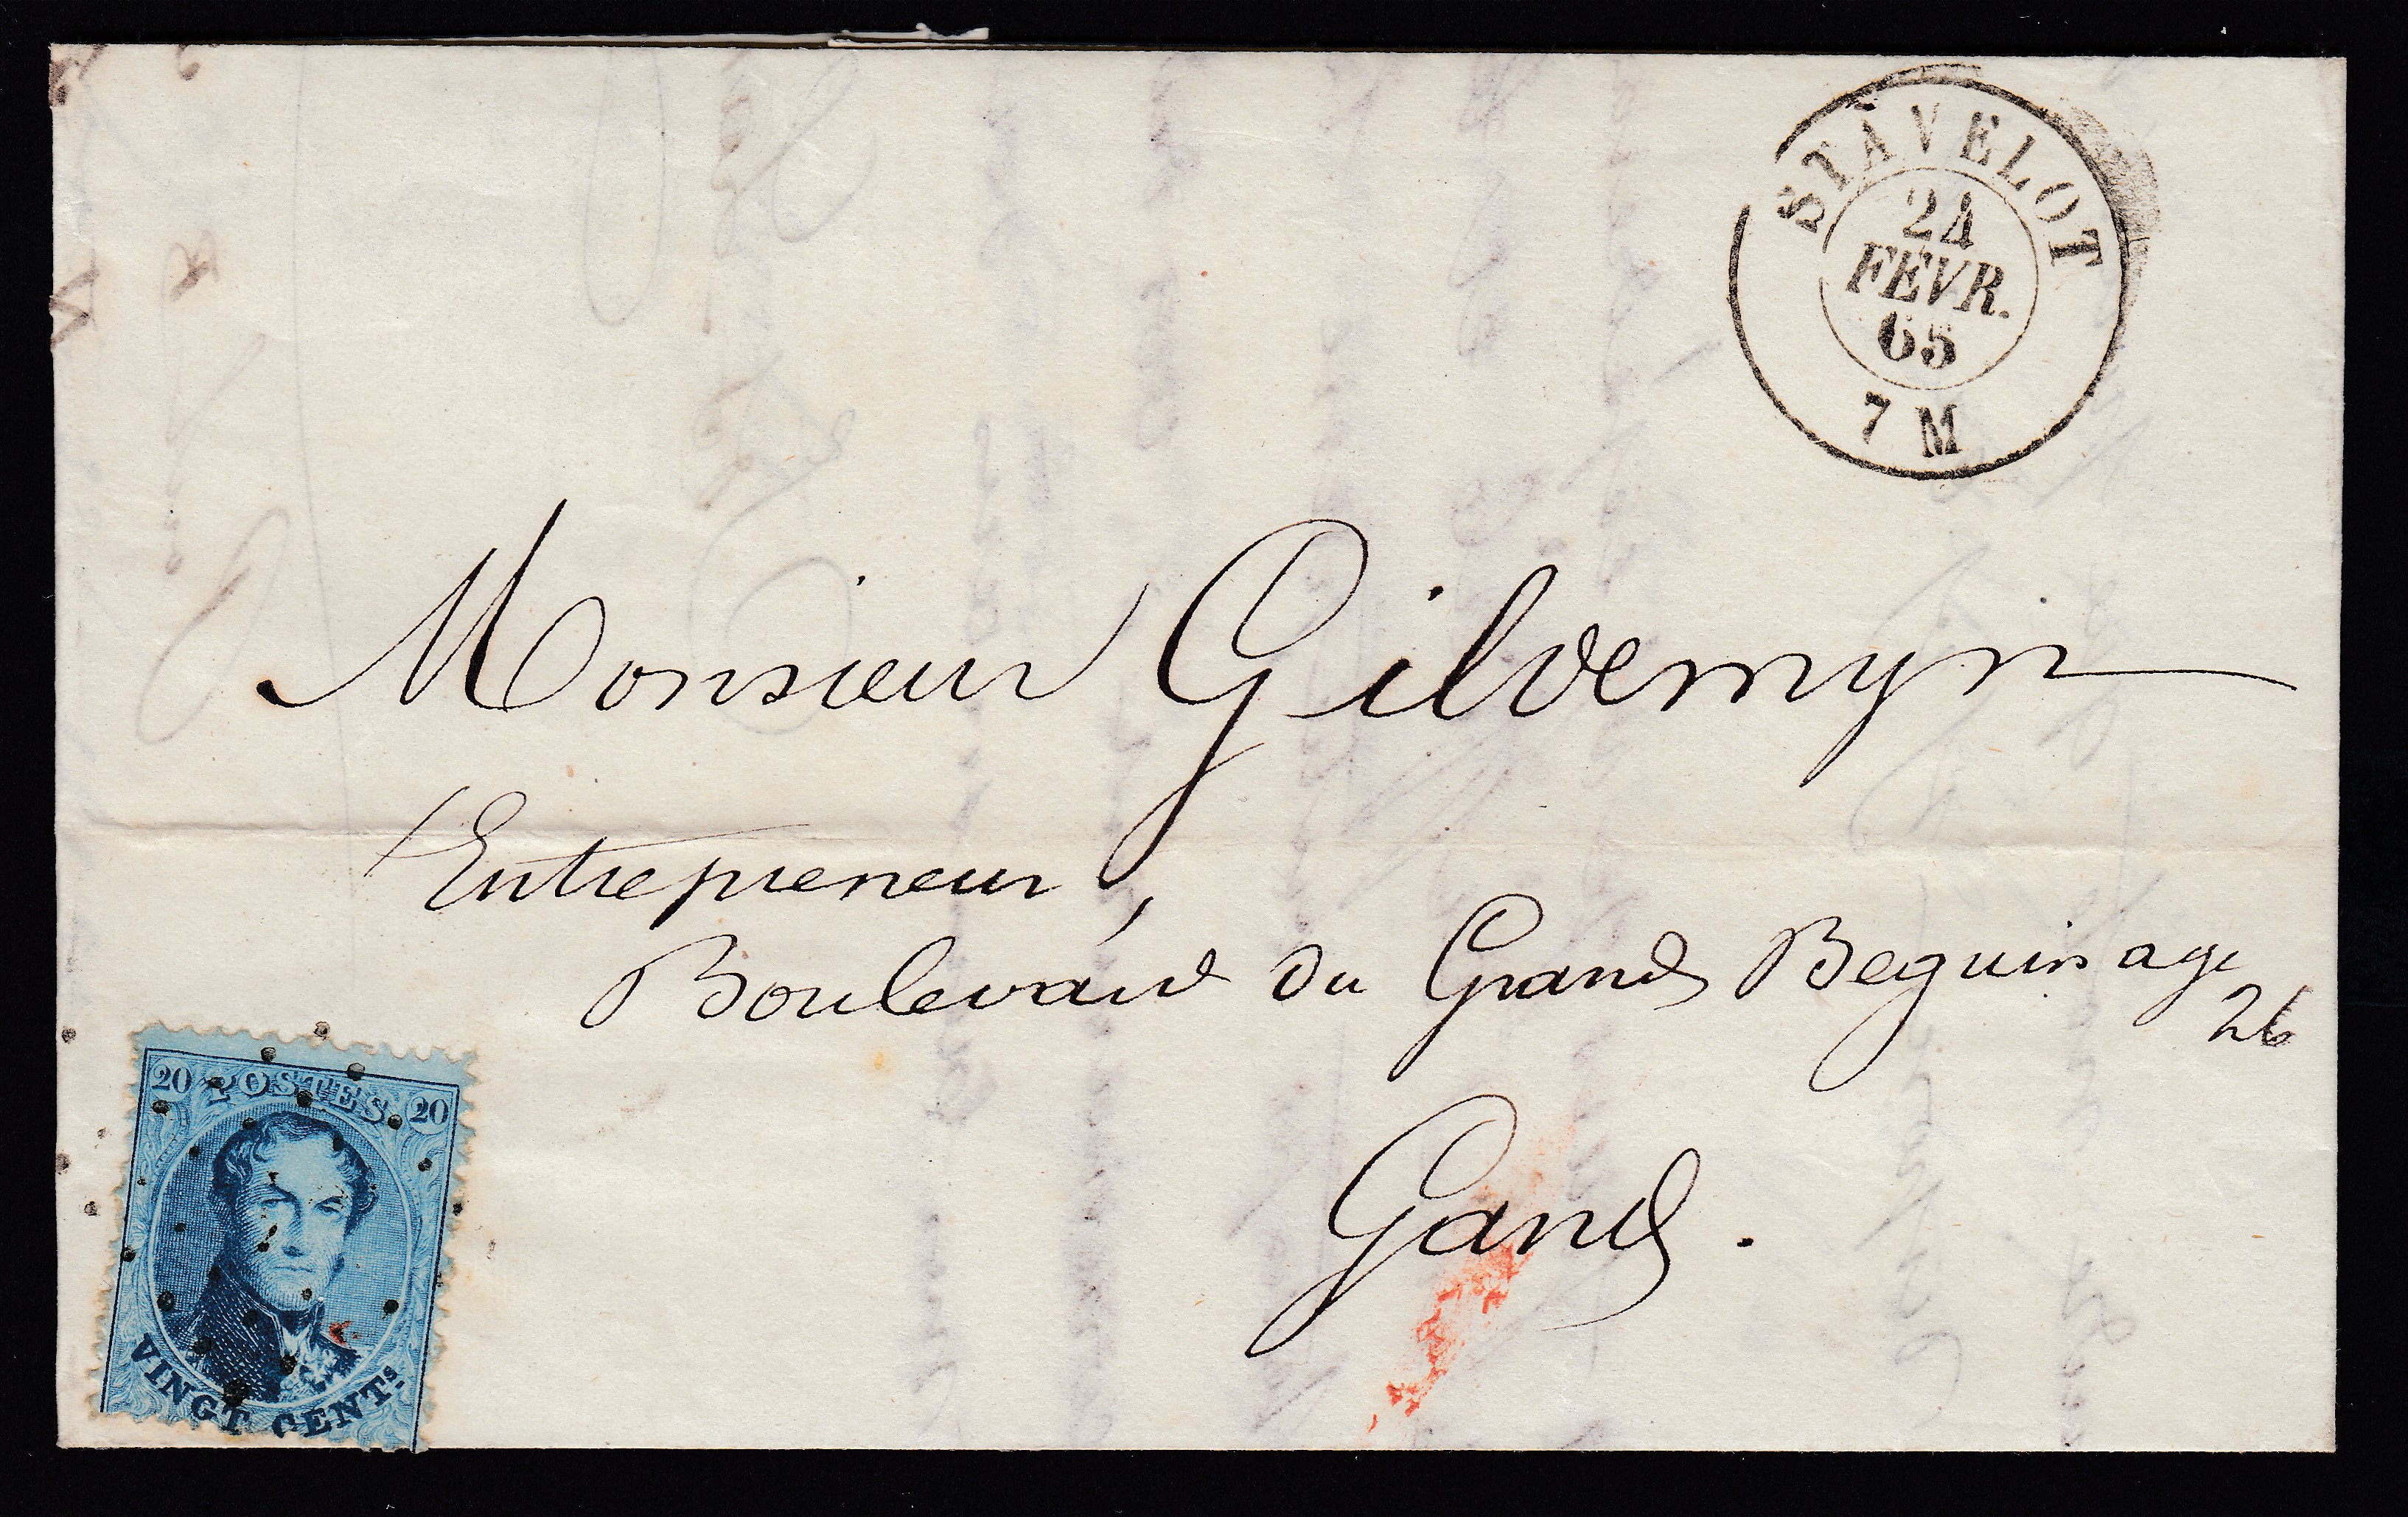 STAVELOT
24
FÉVR.
65
7 M
Monsieur Gilvemyn
Entrepreneur,
Boulevard du Grand Beguinage
26
Gand.
20 POSTES 20
VINGT CENTS